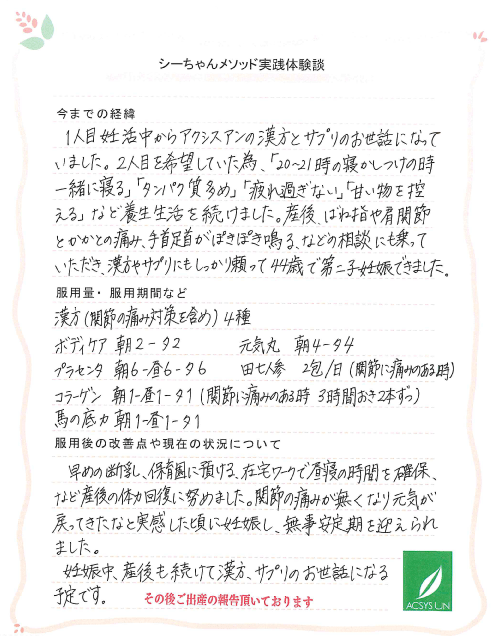 シーちゃんメソッド実践体験談
今までの経緯
1人目妊活中からアクシスアンの漢方とサプリのお世話になって
いました。2人目を希望していた為、「20〜21時の寝かしつけの時
一緒に寝る」「タンパク質多め」「疲れ過ぎない」「甘い物を控
える」など養生生活を続けました。産後、ばね指や肩関節
とかかとの痛み、手首足首がぽきぽき鳴る、などの相談にも乗って
いただき、漢方やサプリにもしっかり頼って44歳で第二子妊娠できました。
服用量・服用期間など
漢方(関節の痛み対策を含め) 4種
ボディケア 朝2-夕2 元気丸 朝4-夕4
プラセンタ 朝6-昼6-夕6 田七人参 2包/日 (関節に痛みのある時)
コラーゲン 朝1-昼1-夕1 (関節に痛みのある時 3時間おき2本ずつ)
馬の底力 朝1-昼1-夕1
服用後の改善点や現在の状況について
早めの断乳、保育園に預ける、在宅ワークで昼寝の時間を確保、
など産後の体力回復に努めました。関節の痛みが無くなり元気が
戻ってきたなと実感した頃に妊娠し、無事安定期を迎えられ
ました。
妊娠中、産後も続けて漢方、サプリのお世話になる
予定です。 その後ご出産の報告頂いております
ACSYS UN